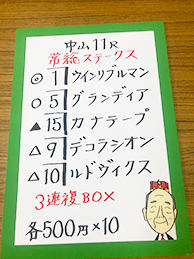 中山11R
常総ステークス
◎1ウインリブルマン
○5グランディア
▲15カナテープ
△9デコラシオン
△10ルドヴィクス
3連複BOX
各500円×10